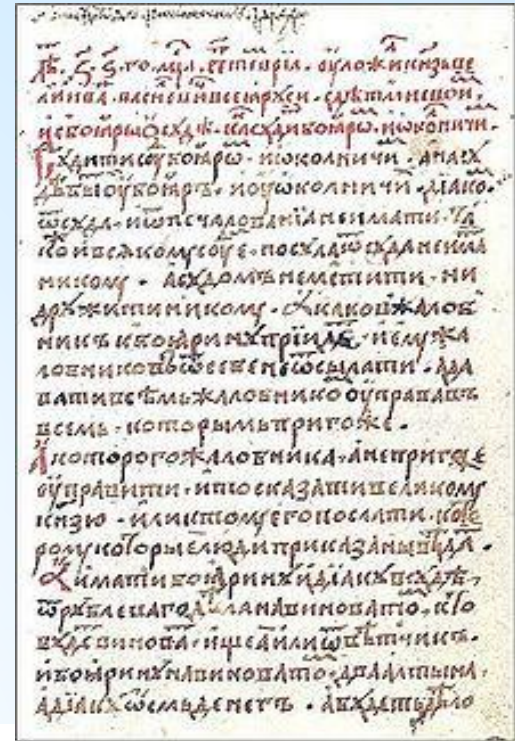 лѣ. ҂з. ѕ. го. мцⷭа. септевріа. оуложи кнѧзь ве
ликⷤи ива василевⷱи всеа рꙋси. с дѣтми свои
и с боꙗры ѡ сꙋдѣ. каⷦ сꙋдиⷮ боꙗрѡⷨ. и ѡколⷩичи.
Сꙋдити сꙋⷣ боꙗрѡⷨ. и ѡколничиⷨ. а на сꙋ
дѣ быти оу боꙗръ. и оу ѡколничиⷯ діако
ѿ сꙋда. и ѿ печалованїа не имати. та
коⷤ и всѧкомꙋ соуⷣе. посꙋла ѿ сꙋда не имаⷮ
никомꙋ. а сꙋдомъ не мстити. ни
дрꙋжити никомꙋ. А каков жалоб
никъ к боꙗринꙋ прїидеⷮ. и емꙋ жа
лобниковъ ѿ себе не ѿсылати. а да
вати всѣмь жалобникоⷨ оуправа въ
всемь. которымь пригоже.
А которого жалобника. а не пригоже
оуправити. и то сказати великомꙋ
кнѧзю. или к томꙋ его послати. кото
ромꙋ которые люди приказаны вѣдаⷮ.
А имати боꙗринꙋ и діакꙋ в сꙋдѣ
ѿ рꙋблеваго дѣла на виноватоⷨ. кто
бꙋдеⷮ виноваⷮ. ищеа или ѿвѣтчикъ.
и боꙗринꙋ на виноватоⷨ. два алтына.
а діакꙋ ѡсмь денегъ. а бꙋдеть дѣло